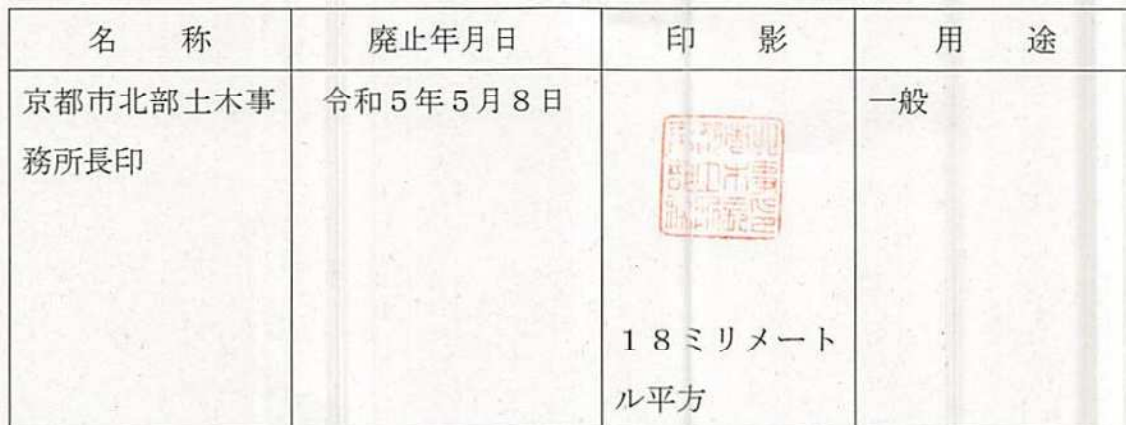 名　称
廃止年月日
印　影
用　途
京都市北部土木事
務所長印
令和５年５月８日
１８ミリメート
ル平方
一般